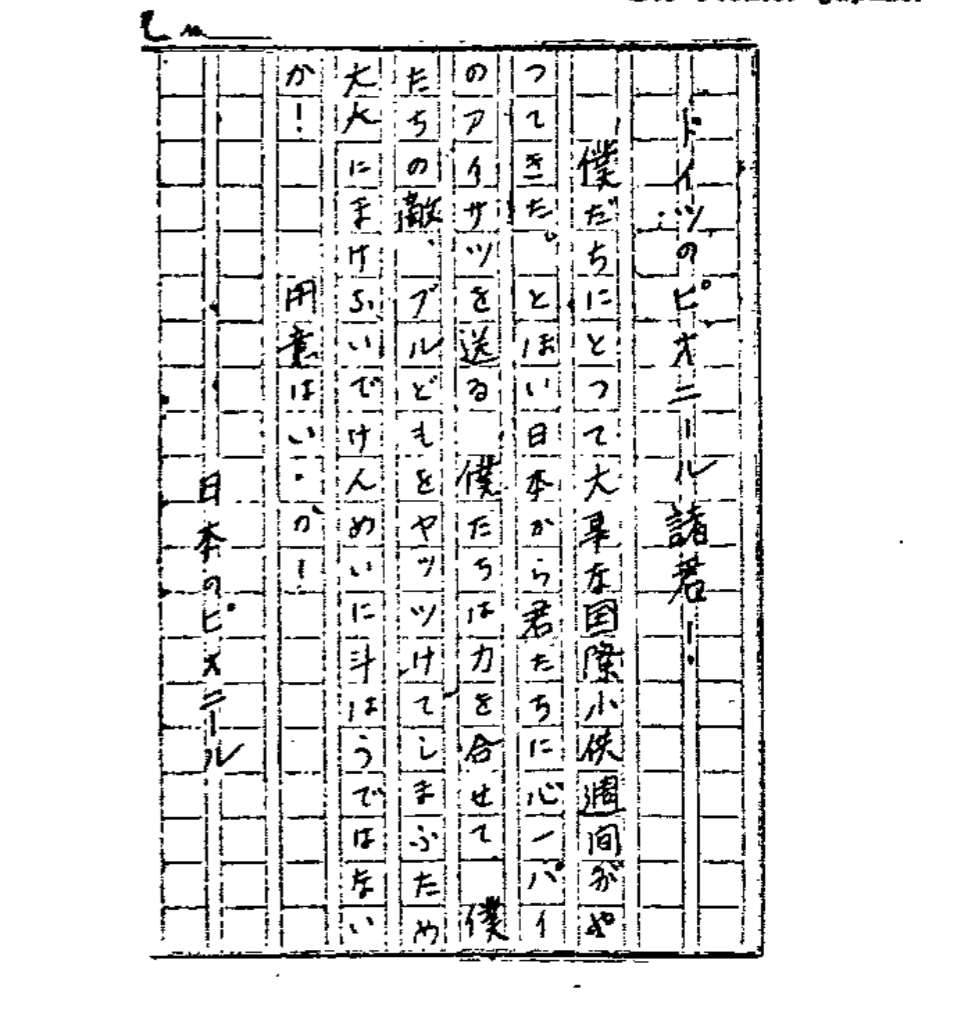 ドイツのピオニール諸君！
僕だちにとつて大事な国際小供週間がや
つてきた。とほい日本から君たちに心一パイ
のアイサツを送る 僕たちは力を合せて 僕
たちの敵、ブルどもをヤッツけてしまふため
大人にまけないでけんめいに斗はうではない
か！ 用意はいゝか！
日本のピオニール